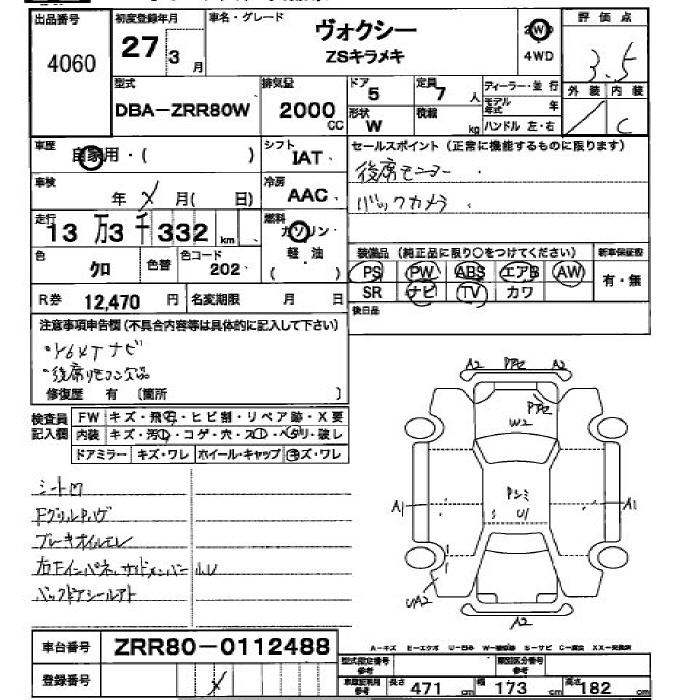 出品番号 4060
初度登録年月 27 3 月
車名・グレード ヴォクシー
ZSキラメキ
2WD
4WD
評価点 3.5
外装 内装 C
型式 DBA-ZRR80W
排気量 2000 CC
ドア 5
定員 7 人
形状 W
積載 kg
ディーラー・並行
モデル年式 年
ハンドル 左・右
車歴 自家用・( )
シフト IAT
セールスポイント(正常に機能するものに限ります)
後席モニター
バックカメラ
車検 年 月( 日)
冷房 AAC
走行 13万3千332 km
燃料 ガソリン・軽・油 ( )
色 クロ 色替
色コード 202
装備品(純正品に限り○をつけてください)
PS PW ABS エアB AW
SR ナビ TV カワ
新車保証書 有・無
後日品
R券 12,470 円
名変期限 月 日
注意事項申告欄(不具合内容等は具体的に記入して下さい)
後席リモコン欠品
修復歴 有 〔箇所 〕
検査員記入欄
FW キズ・飛石・ヒビ割・リペア跡・X要
内装 キズ・汚れ・コゲ・穴・スレ・ヘタリ・破レ
ドアミラー キズ・ワレ ホイール・キャップ キズ・ワレ
ブレーキオイルモレ
A2 A2
W2
A1 A1
U1
UA2
A2
車台番号 ZRR80-0112488
登録番号
型式指定番号 参考
類別区分番号 参考
車庫証明用 参考
長さ 471 cm 幅 173 cm 高さ 182 cm